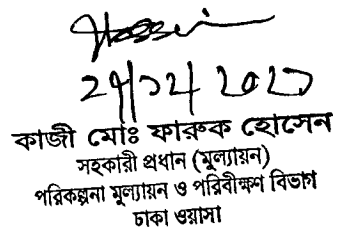 ২৭/১২/২০২০
কাজী মোঃ ফারুক হোসেন
সহকারী প্রধান (মুল্যায়ন)
পরিকল্পনা মুল্যায়ন ও পরিবীক্ষণ বিভাগ
ঢাকা ওয়াসা